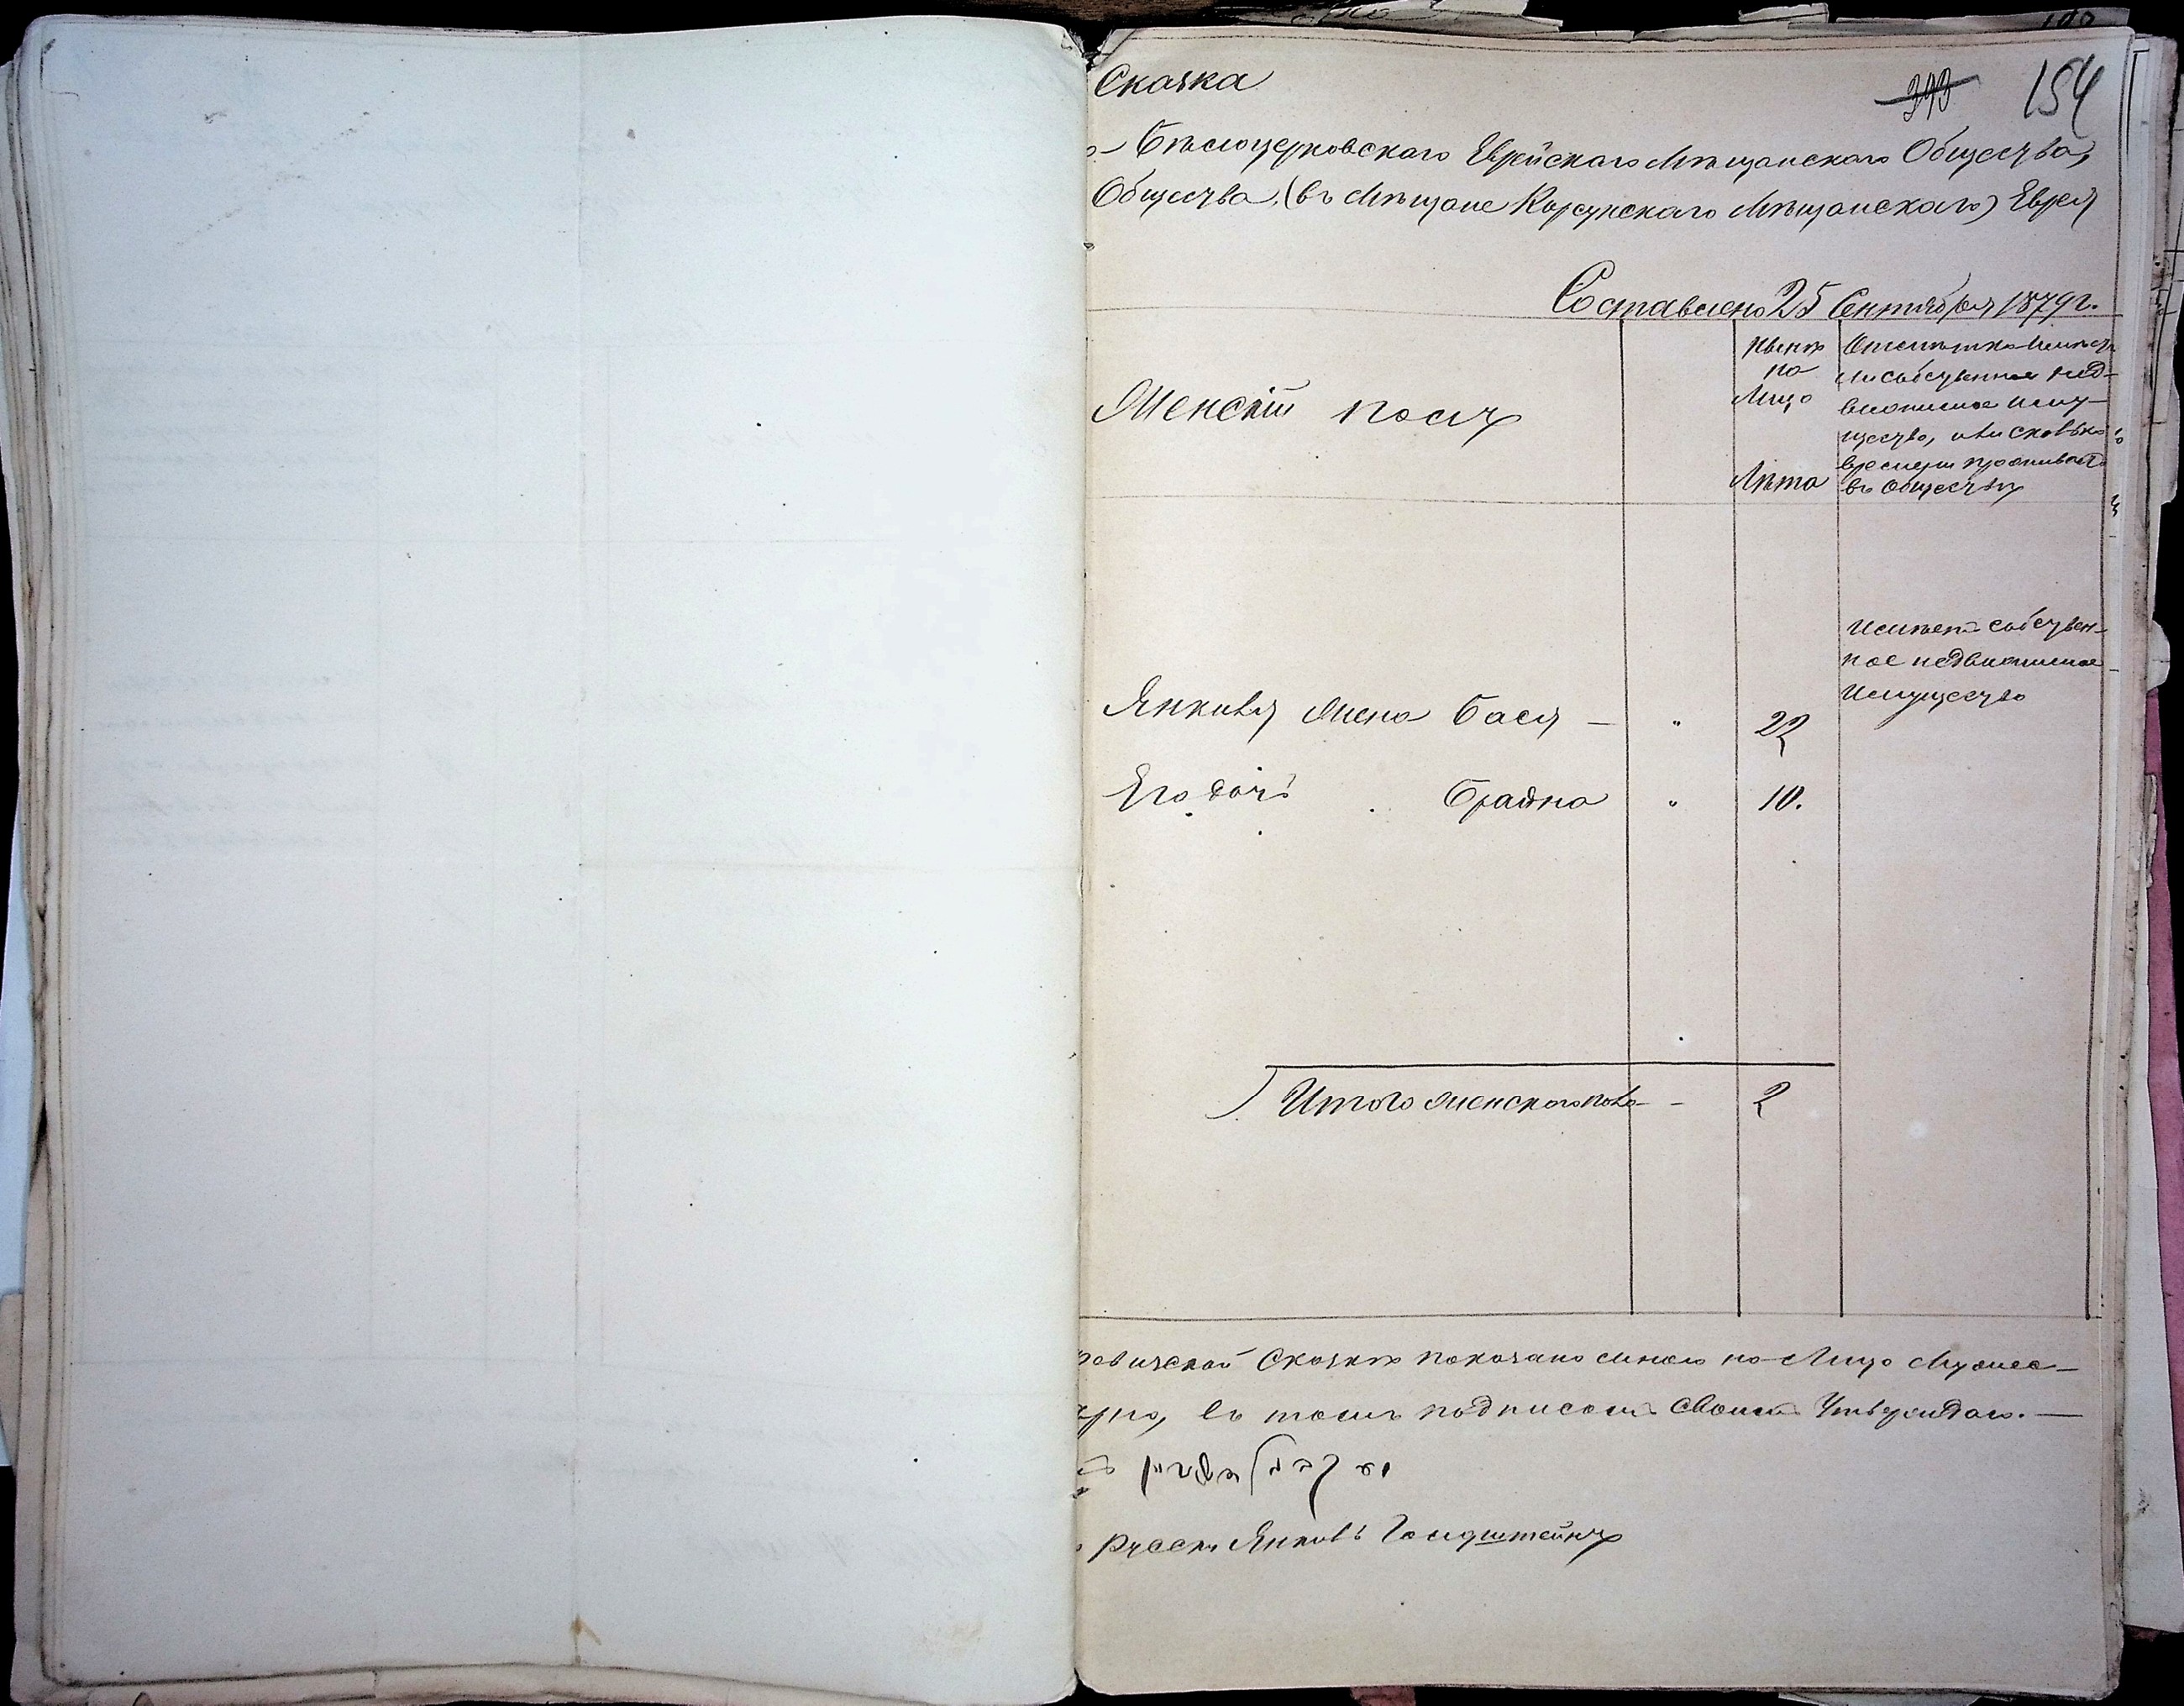 Сказка
393 154
Бѣлоцерковскаго Еврейскаго Мѣщанскаго Общества,
Общества, (въ Мѣщане Корсунскаго Мѣщанскаго) Еврея
Составлено 25 Сентября 1879 г.
Женскій полъ
Нынѣ
на
Лицо
Лѣта
Отмѣтка имѣетъ
ли собственное нед-
вижимое иму-
щество, или сколько
времени проживаетъ
въ Обществѣ
Имѣетъ собствен-
ное недвижимое
Имущество
Янкова жена Бася — " 22
Его дочь Брайна " 10.
Итого женскаго пола - - 2
Сказкѣ показано мною на Лицо Мужес-
въ томъ подписомъ своимъ Утверждаю. —
Янковъ Голдштейнъ